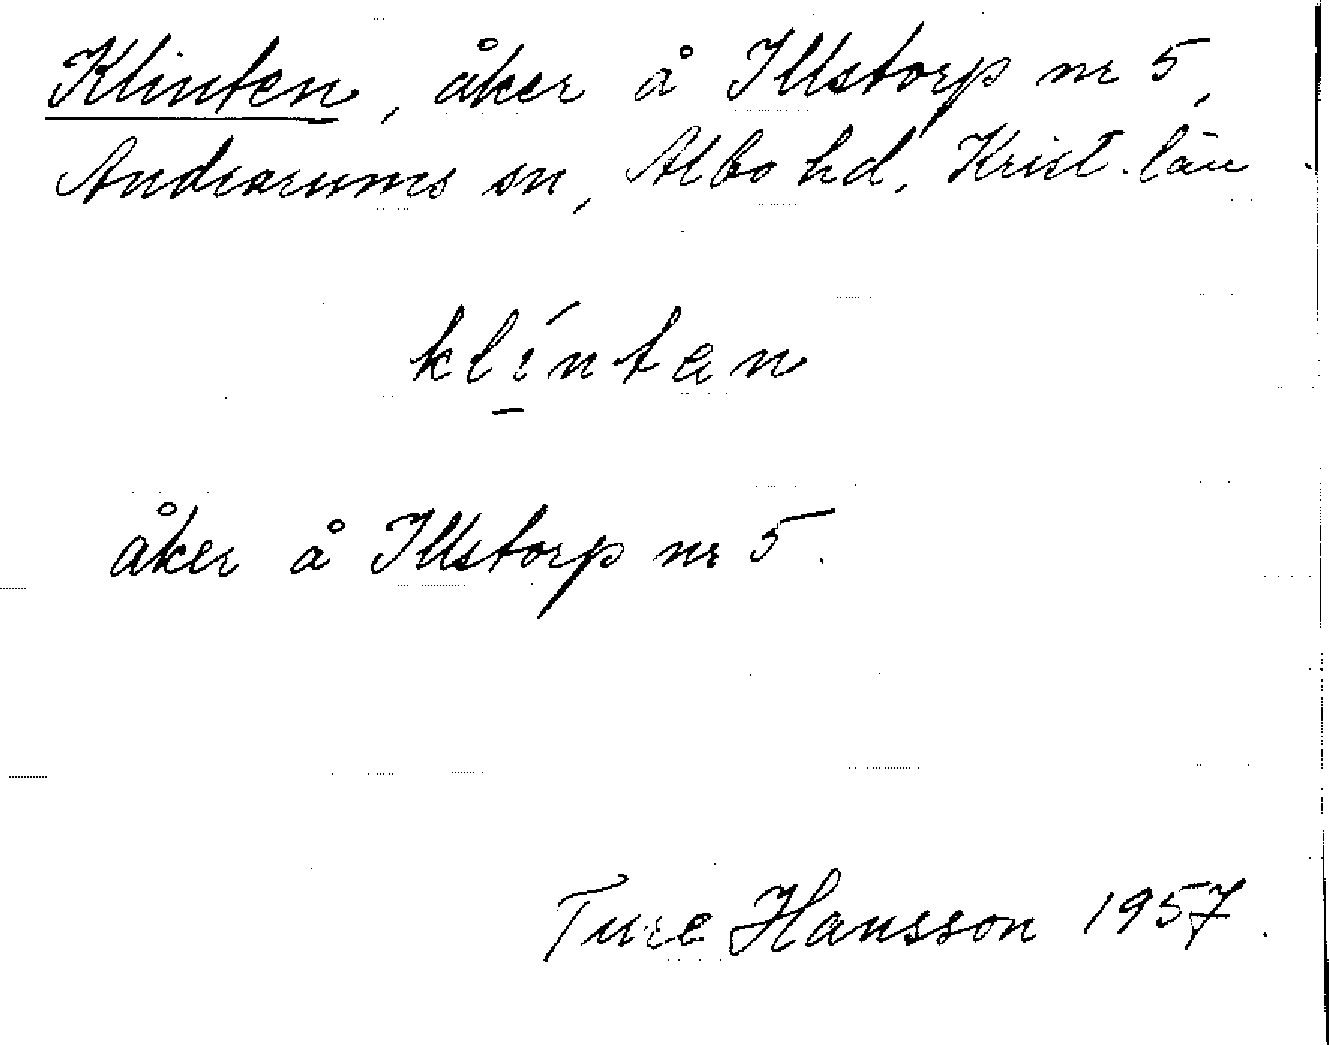 Klinten, åker å Illstorp nr 5,
Andrarums sn, Albo hd, Krist. län
klíntan
åker å Illstorp nr 5.
Ture Hansson 1957.